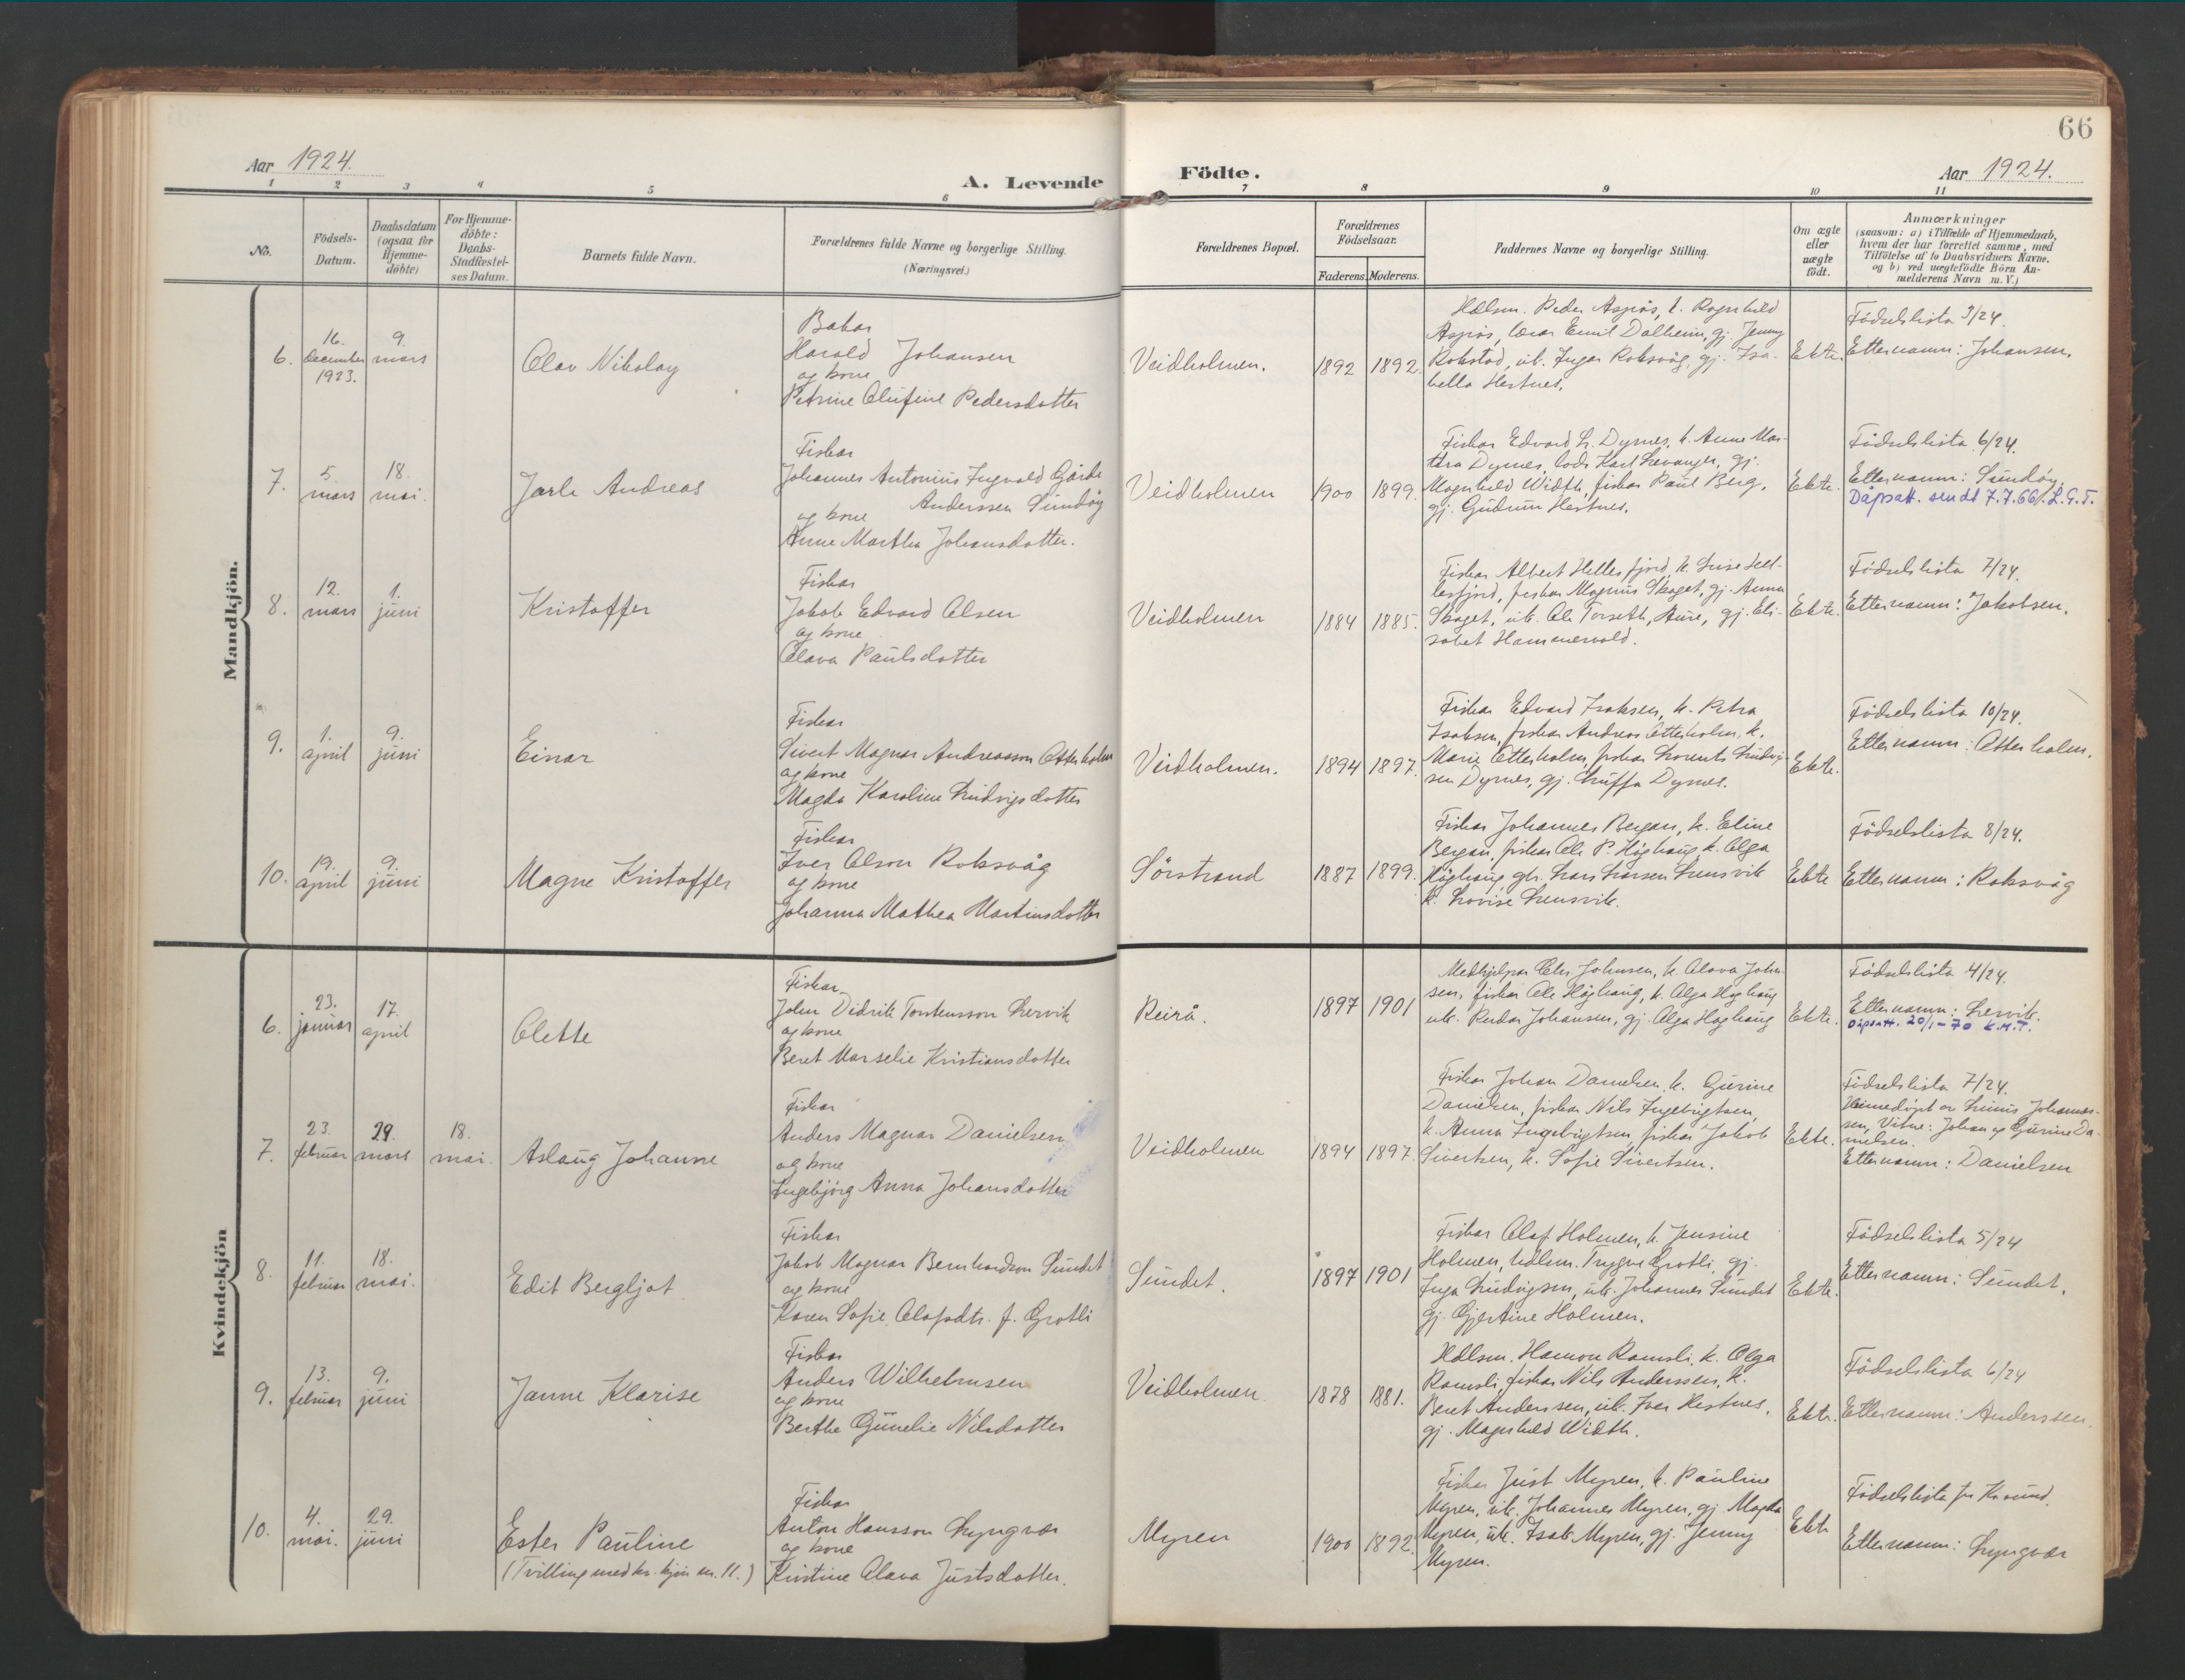 66
Aar 1924.
A. Levende Födte.
Aar 1924.
1 2 3 4 5 6 7 8 9 10 11
No.
Födsels-
Datum.
Daabsdatum
(ogsaa for
Hjemme-
döbte)
For Hjemme-
döbte:
Daabs-
Stadfæstel-
ses Datum.
Barnets fulde Navn.
Forældrenes fulde Navne og borgerlige Stilling.
(Næringsvei.)
Forældrenes Bopæl.
Forældrenes
Födselsaar.
Faderens. Moderens.
Faddernes Navne og borgerlige Stilling.
Om ægte
eller
uægte
födt.
Anmærkninger
(saasom: a) i Tilfælde af Hjemmedaab,
hvem der har forrettet samme, med
Tilföielse af to Daabsvidners Navne.
og b) ved uægtefödte Börn An-
melderens Navn m. V.)
Mandkjön.
6.
16.
December
1923.
9.
mars
Olav Nikolay
Bakar
Harald Johansen
og kone
Petrine Olufine Pedersdotter
Veidholmen.
1892 1892.
Hdlsm. Peder Aspös, k. Ragnhild
Aspös, lærar Emil Dalheim, gj. Jenny
Rokstad, uk. Ingar Roksvåg, gj. Isa-
bella Hestnes.
Ekte.
Födselslista 3/24.
Etternamn: Johansen.
7.
5.
mars
18.
mai.
Jarle Andreas
Fiskar
Johannes Antonius Ingvald Gjärde
Anderssen Sundöy
og kone
Anne Martha Johansdotter.
Veidholmen
1900 1899.
Fiskar Edvard L. Dyrnes, k. Anne Mar-
tha Dyrnes, lods Karl Levanger, gj.
Magnhild Width, fiskar Paul Berg,
gj. Gudrun Hestnes.
Ekte.
Födselslista 6/24.
Etternamn: Sundöy.
Dåpsatt. sendt 7.7.66. L.G.T.
8.
12.
mars
1.
juni
Kristoffer
Fiskar
Jakob Edvard Olsen
og kone
Olava Paulsdotter
Veidholmen
1884 1885.
Fiskar Albert Hellesfjord, k. Lise Hel-
lesfjord, fiskar Magnus Skaget, gj. Anna
Skaget, uk. Ole Torseth, Aure, gj. Eli-
sabet Hammervold.
Ekte.
Födselslista 7/24.
Etternamn: Jakobsen.
9.
1.
april
9.
juni
Einar
Fiskar
Sivert Magnar Andreasson Otterholm
og kone
Magda Karoline Ludvigsdotter
Veidholmen.
1894 1897.
Fiskar Edvard Isaksen, k. Petra
Isaksen, fiskar Andreas Otterholm, k.
Marie Otterholm, fiskar Lorents Ludvig-
sen Dyrnes, gj. Luffa Dyrnes.
Ekte.
Födselslista 10/24.
Etternamn: Otterholm.
10.
19.
april
9.
juni
Magne Kristoffer
Fiskar
Iver Olson Roksvåg
og kone
Johanna Mathea Martinsdotter
Sörstrand
1887 1899.
Fiskar Johannes Bergan, k. Eline
Bergan, fiskar Ole P. Höghaug, k. Olga
Höghaug, gbr. Lars Larsen Lensvik
k. Lovise Lensvik.
Ekte
Födselslista 8/24.
Etternamn: Roksvåg
Kvindekjön
6.
23.
januar
17.
april
Olette
Fiskar
John Didrik Torstensson Lervik
og kone
Beret Marselie Kristiansdotter
Reirå.
1897 1901
Medhjelpar Johnsen, k. Olava John-
sen, fiskar Ole Höghaug, k. Olga Höghaug
uk. Peder Johansen, gj. Olga Høghaug
Ekte.
Födselslista 4/24.
Etternamn: Lervik.
Dåpsatt. 20/1-70 K.M.T.
7.
23.
februar
29.
mars
18.
mai.
Aslaug Johanne
Fiskar
Anders Magnar Danielsen
og kone
Ingebjörg Anna Johansdotter
Veidholmen
1894 1897.
Fiskar Johan Danielsen, k. Gurine
Danielsen, fiskar Nils Ingebrigtsen,
k. Anna Ingebrigtsen, fiskar Jakob
Sivertsen, k. Sofie Sivertsen.
Ekte.
Födselslista 7/24.
Heimedöpt av Linus Johannes-
sen, Vitne: Johan og Gurine Da-
nielsen.
Etternamn: Danielsen
8.
11.
februar
18.
mai.
Edit Bergljot
Fiskar
Jakob Magnar Bernhardson Sundet
og kone
Karen Sofie Olafsdtr. f. Grotli
Sundet.
1897 1901
Fiskar Olaf Holmen, k. Jensine
Holmen, hdlsm. Trygve Grotli, gj.
Inga Ludvigsen, uk. Johannes Sundet
gj. Gjertine Holmen.
Ekte.
Födselslista 5/24
Etternamn: Sundet.
9.
13.
februar
9.
juni
Janne Klarise
Fiskar
Anders Wilhelmsen
og kone
Berthe Gunelie Nilsdotter
Veidholmen.
1878 1881.
Hdlsm. Hamon Ramsli, k. Olga
Ramsli, fiskar Nils Anderssen, k.
Beret Anderssen, uk. Ivar Hestnes,
gj. Magnhild Width.
Ekte.
Födselslista 6/24
Etternamn: Anderssen.
10.
4.
mai.
29.
juni
Ester Pauline
(Tvilling med kv. kjön nr. 11.)
Fiskar
Anton Hansson Lyngvær
og kone
Kristine Olava Justsdotter.
Myren
1900 1892.
Fiskar Just Myren, k. Pauline
Myren, uk. Johannes Myren, gj. Magda
Myren, uk. Isak Myren, gj. Jenny
Myren.
Ekte
Födselslista fr Kr.sund.
Etternamn: Lyngvær